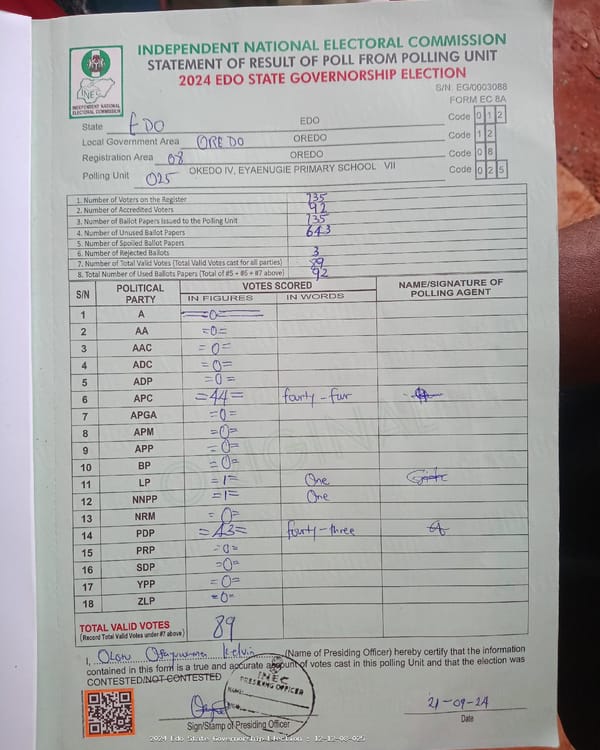 INDEPENDENT NATIONAL ELECTORAL COMMISSION
STATEMENT OF RESULT OF POLL FROM POLLING UNIT
2024 EDO STATE GOVERNORSHIP ELECTION
INEC
INDEPENDENT NATIONAL ELECTORAL COMMISSION
S/N: EG/0003088
FORM EC 8A
State EDO EDO Code 0 1 2
Local Government Area OREDO OREDO Code 1 2
Registration Area 08 OREDO Code 0 8
Polling Unit 025 OKEDO IV, EYAENUGIE PRIMARY SCHOOL VII Code 0 2 5
1. Number of Voters on the Register 735
2. Number of Accredited Voters 92
3. Number of Ballot Papers Issued to the Polling Unit 735
4. Number of Unused Ballot Papers 643
5. Number of Spoiled Ballot Papers
6. Number of Rejected Ballots 3
7. Number of Total Valid Votes (Total Valid Votes cast for all parties) 89
8. Total Number of Used Ballots Papers (Total of #5 + #6 + #7 above) 92
S/N POLITICAL PARTY VOTES SCORED NAME/SIGNATURE OF POLLING AGENT
IN FIGURES IN WORDS
1 A =0=
2 AA =0=
3 AAC =0=
4 ADC =0=
5 ADP =0=
6 APC =44= fourty-fur
7 APGA =0=
8 APM =0=
9 APP =0=
10 BP =0=
11 LP =1= One
12 NNPP =1= One
13 NRM =0=
14 PDP =43= fourty-three
15 PRP =0=
16 SDP =0=
17 YPP =0=
18 ZLP =0=
TOTAL VALID VOTES 89
(Record Total Valid Votes under #7 above)
I, Kelvin (Name of Presiding Officer) hereby certify that the information
contained in this form is a true and accurate account of votes cast in this polling Unit and that the election was
CONTESTED/NOT CONTESTED
INEC
PRESIDING OFFICER
21-09-24
Sign/Stamp of Presiding Officer Date
2024 Edo State Governorship Election : 12-12-08-025